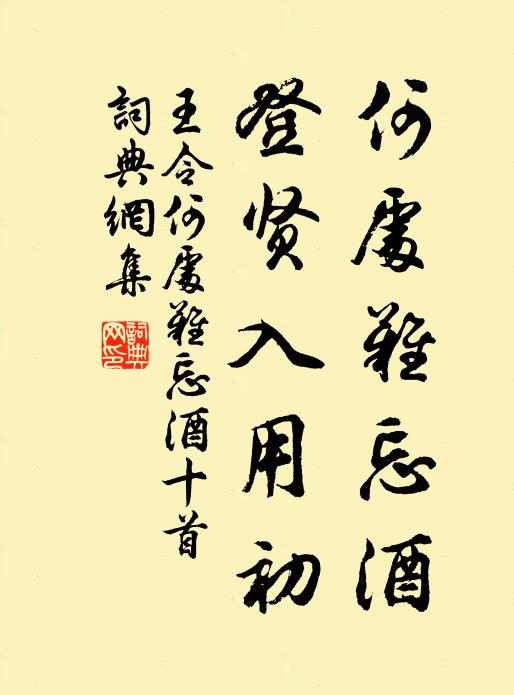 何處難忘酒
登贤入用初
王令何處難忘酒十首
詞典網集
詞典網印